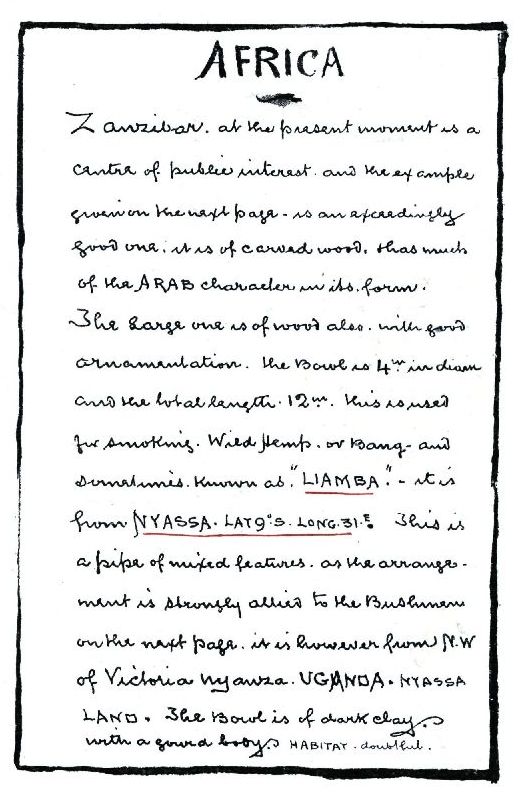 AFRICA
Zanzibar. at the present moment is a
centre of public interest. and the example
given on the next page - is an exceedingly
good one. it is of carved wood. & has much
of the ARAB character in its form.
The large one is of wood also. with good
ornamentation. the Bowl is 4in in diam
and the total length. 12in. this is used
for smoking. Wild Hemp. or Bang - and
sometimes. known as "LIAMBA." - it is
from NYASSA. LAT 9°S. LONG. 31.E. This is
a pipe of mixed features. as the arrange-
ment is strongly allied to the Bushmen
on the next page. it is however from N.W
of Victoria Nyanza. UGANDA. NYASSA
LAND. The Bowl is of dark clay.
with a gourd body. HABITAT. doubtful.